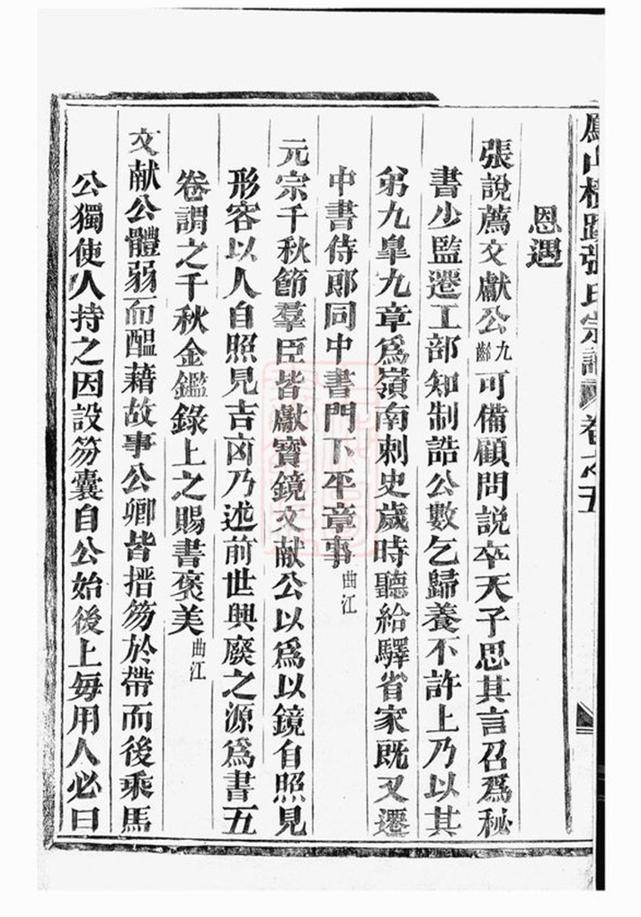 張氏宗譜 卷之五
恩遇
張說薦文獻公九齡可備顧問說卒天子思其言召爲秘
書少監遷工部知制誥公數乞歸養不許上乃以其
弟九皐九章爲嶺南刺史歲時聽給驛省家旣又遷
中書侍郎同中書門下平章事曲江
元宗千秋節羣臣皆獻寶鏡文献公以爲以鏡自照見
形容以人自照見吉凶乃述前世興廢之源爲書五
卷謂之千秋金鑑錄上之賜書褒美曲江
文献公體弱而醞藉故事公卿皆搢笏於帶而後乘馬
公獨使人持之因設笏囊自公始後上每用人必曰